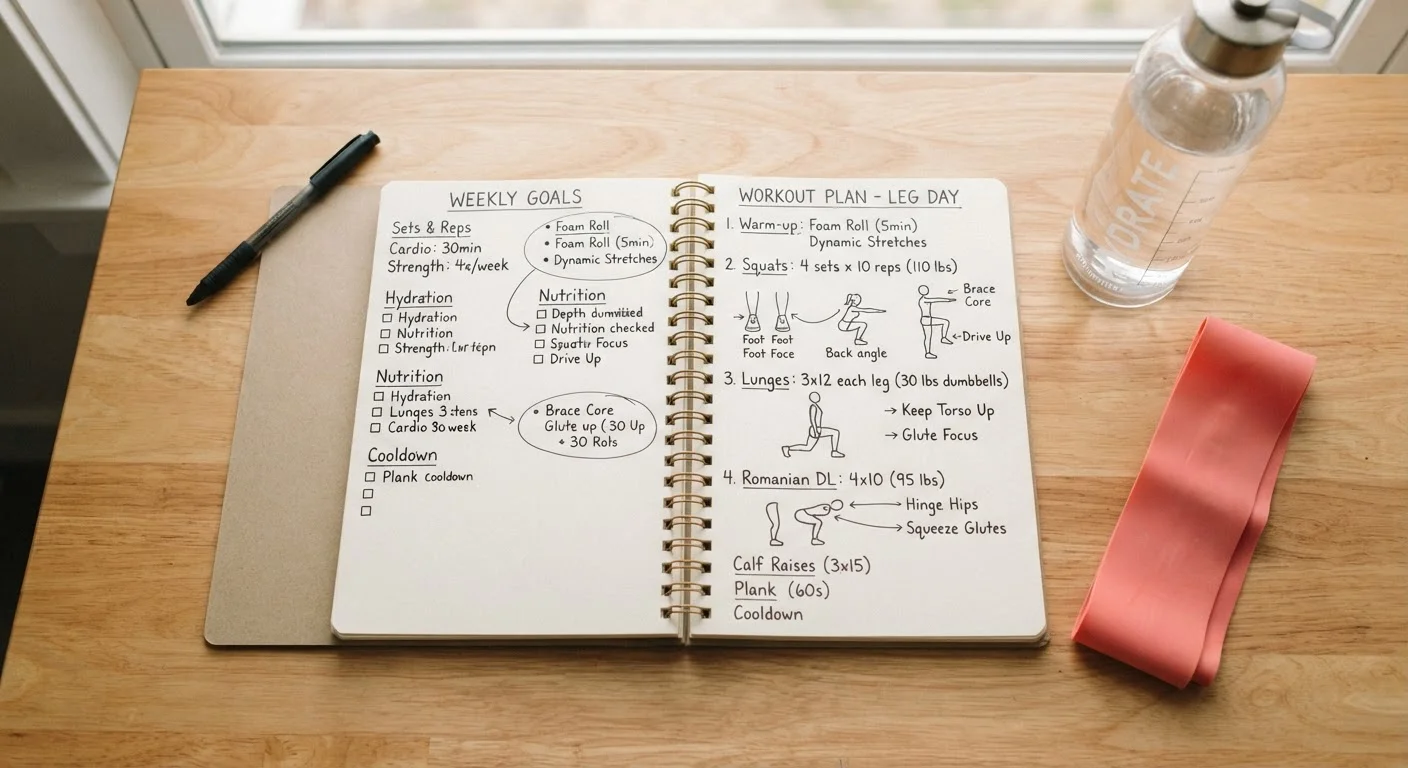 WEEKLY GOALS
Sets & Reps
Cardio: 30min
Strength: /week
• Foam Roll
• Foam Roll (5min)
• Dynamic Stretches
Hydration
Hydration
Nutrition
Strength:
Nutrition
Depth
Nutrition checked
Focus
Drive Up
Nutrition
Hydration
Lunges 3
Cardio 30 week
• Brace Core
Glute up (30 Up
+ 30 Rots
Cooldown
Plank cooldown
WORKOUT PLAN - LEG DAY
1. Warm-up: Foam Roll (5min)
Dynamic Stretches
2. Squats: 4 sets x 10 reps (110 lbs)
Foot Foot
Foot Foce
Back angle
Brace
Core
Drive Up
3. Lunges: 3x12 each leg (30 lbs dumbbells)
→ Keep Torso Up
→ Glute Focus
4. Romanian DL: 4x10 (95 lbs)
Hinge Hips
Squeeze Glutes
Calf Raises (3x15)
Plank (60s)
Cooldown
DRATE